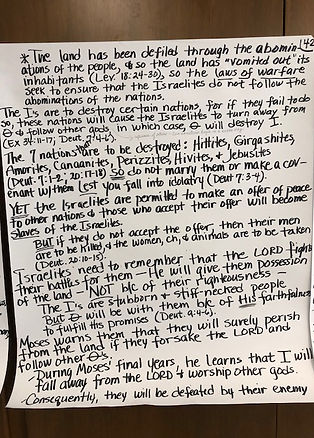 * The land has been defiled through the abomin- 42
ations of the people, & so the land has "vomited out" its
inhabitants (Lev. 18:24-30), so the laws of warfare
seek to ensure that the Israelites do not follow the
abominations of the nations.
The I's are to destroy certain nations, for if they fail to do
so, these nations will cause the Israelites to turn away from
& follow other gods, in which case, will destroy I.
(Ex 34:11-17; Deut. 7:4-6).
The 7 nations that are to be destroyed: Hittites, Girgashites,
Amorites, Canaanites, Perizzites, Hivites, & Jebusites
(Deut. 7:1-2; 20:17-18) So do not marry them or make a cov-
enant w/them lest you fall into idolatry (Deut 7:3-4).
YET the Israelites are permitted to make an offer of peace
to other nations & those who accept their offer will become
slaves of the Israelites.
BUT if they do not accept the offer, then their men
are to be killed, & the women, ch, & animals are to be taken
(Deut. 20:10-15).
Israelites need to remember that the LORD fights
their battles for them - He will give them possession
of the land - NOT b/c of their righteousness -
The I's are stubborn & stiff-necked people
But will be with them b/c of His faithfulness
to fulfill his promises (Deut. 9:4-6).
Moses warns them that they will surely perish
from the land if they forsake the LORD and
follow other
- During Moses' final years, he learns that I will
fall away from the LORD & worship other gods.
- Consequently, they will be defeated by their enemy